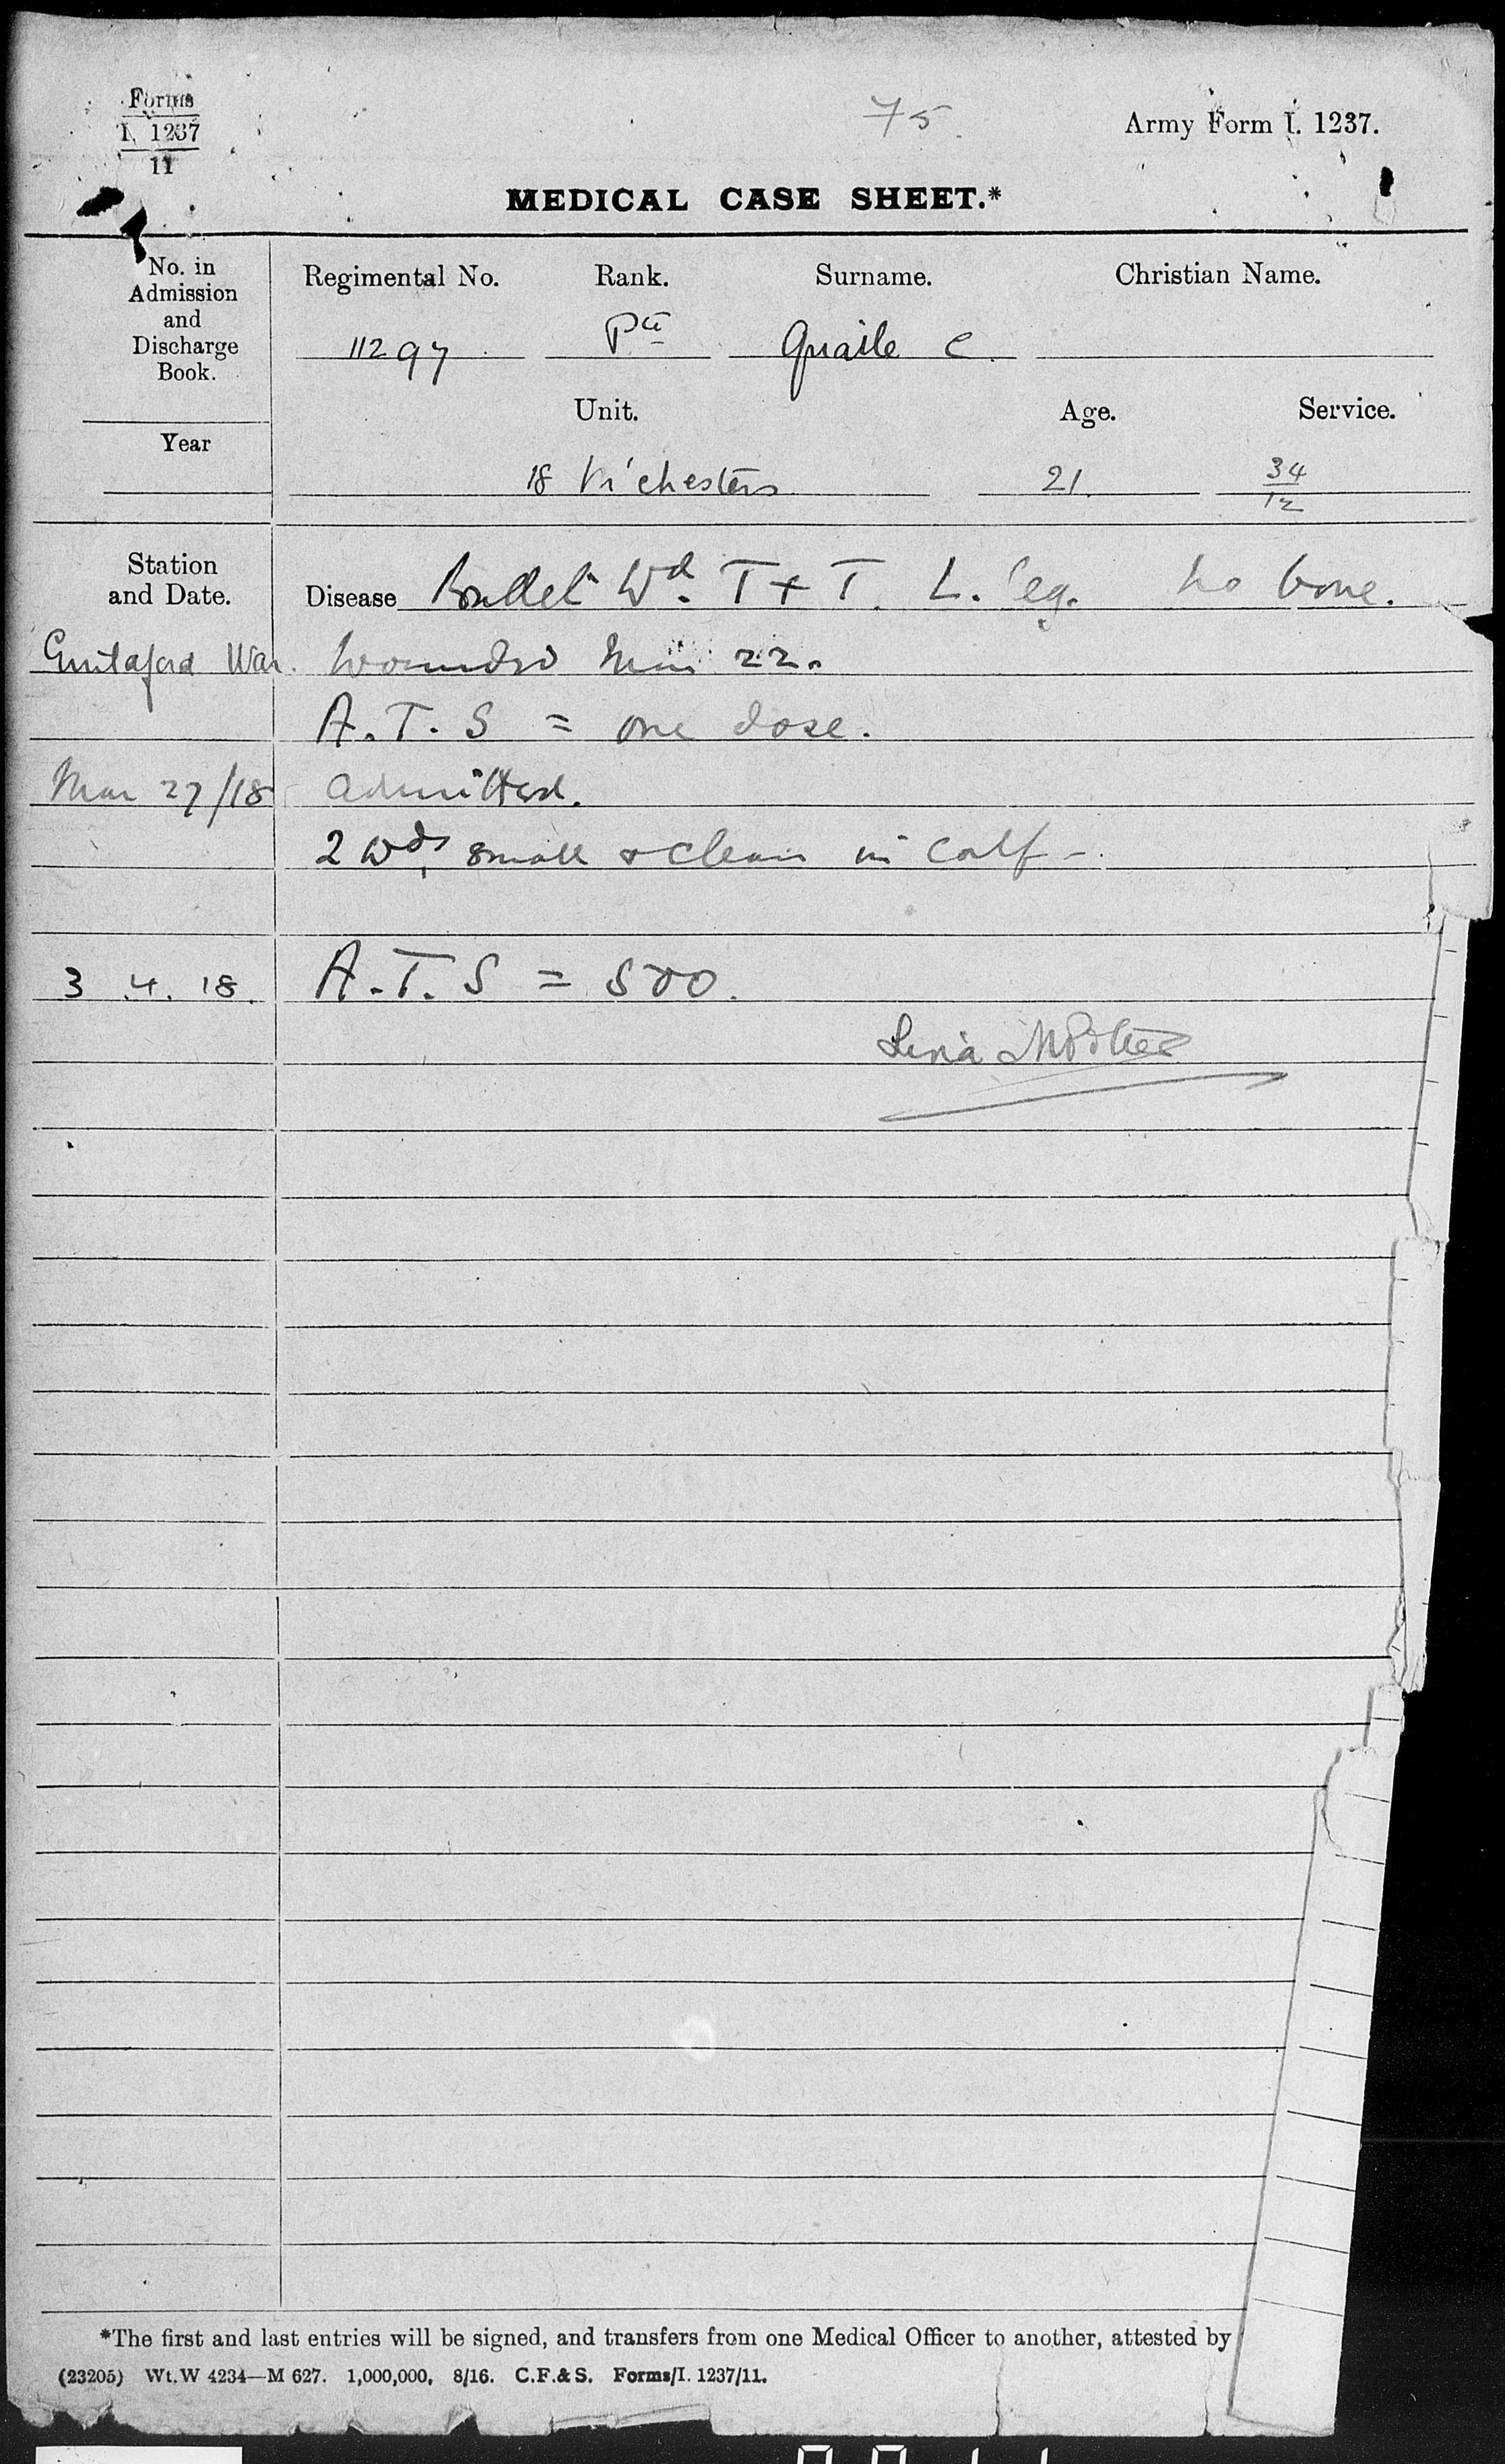 Forms
I. 1237
11
75
Army Form I. 1237.
MEDICAL CASE SHEET.*
No. in
Admission
and
Discharge
Book.
Year
Regimental No. Rank. Surname. Christian Name.
11297 Pte Quaile C.
Unit. Age. Service.
18 M'chesters 21. 34/12
Station
and Date.
Disease Bullet Wd. T + T. L. leg. no bone.
War. Wounded Mar 22.
A.T.S = one dose.
Mar 27/18 admitted.
2 wds, small & clean in calf -
3.4.18. A.T.S = 500.
*The first and last entries will be signed, and transfers from one Medical Officer to another, attested by
(23205) Wt. W 4234—M 627. 1,000,000. 8/16. C.F.& S. Forms/I. 1237/11.